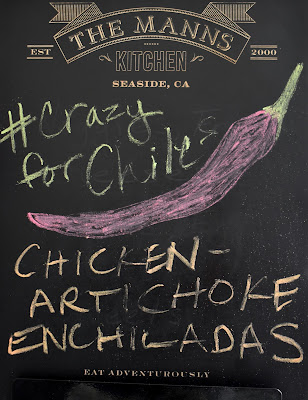 THE MANNS
EST KITCHEN 2000
SEASIDE, CA
#Crazy
for Chiles
CHICKEN-
ARTICHOKE
ENCHILADAS
EAT ADVENTUROUSLY